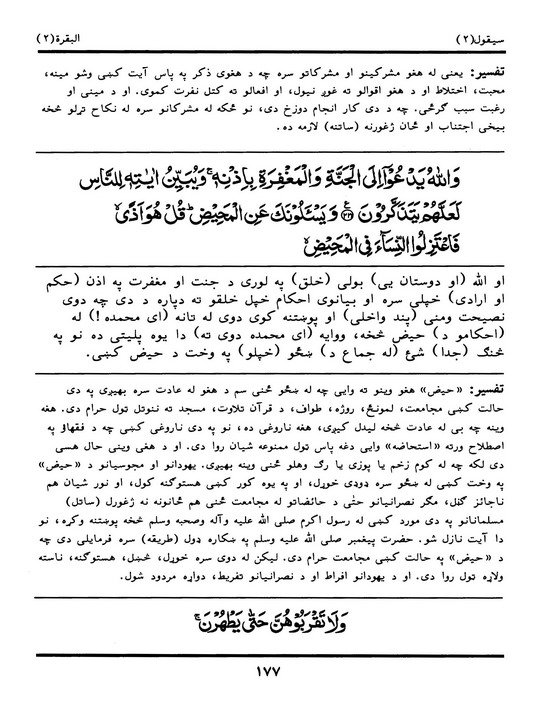 سیقول(۲) البقرة(۲)
تفسیر: یعنی له هغو مشرکینو او مشرکاتو سره چه د هغوی ذکر په پاس آیت کښی وشو مینه،
محبت، اختلاط او د هغو اقوالو ته غوږ نیول، او افعالو ته کتل نفرت کموی. او د مینی او
رغبت سبب گرځی. چه د دی کار انجام دوزخ دی، نو ځکه له مشرکانو سره له نکاح تړلو څخه
بیخی اجتناب او ځان ژغورنه (ساتنه) لازمه ده.
وَاللهُ يَدْعُوْٓا اِلَى الْجَنَّةِ وَالْمَغْفِرَةِ بِاِذْنِهٖ ۚ وَيُبَيِّنُ اٰيٰتِهٖ لِلنَّاسِ
لَعَلَّهُمْ يَتَذَكَّرُوْنَ ﴿۲۲۱﴾ وَيَسْـَٔلُوْنَكَ عَنِ الْمَحِيْضِ ؕ قُلْ هُوَ اَذًى ۙ
فَاعْتَزِلُوا النِّسَآءَ فِى الْمَحِيْضِ ۙ
او الله (او دوستان یی) بولی (خلق) په لوری د جنت او مغفرت په اذن (حکم
او ارادی) خپلی سره او بیانوی احکام خپل خلقو ته دپاره د دی چه دوی
نصیحت ومنی (پند واخلی) او پوښتنه کوی دوی له تانه (ای محمده!) له
(احکامو د) حیض څخه، ووایه (ای محمده دوی ته) دا یوه پلیتی ده نو په
څنګ (جدا) شئ (له جماع د) ښځو (خپلو) په وخت د حیض کښی.
تفسیر: «حیض» هغو وینو ته وایی چه له ښځو ځنی سم د هغو له عادت سره بهیږی په دی
حالت کښی مجامعت، لمونځ، روژه، طواف، د قرآن تلاوت، مسجد ته ننوتل تول حرام دی. هغه
وینه چه بی له عادت څخه لیدل کیږی، هغه ناروغی ده، نو په دی ناروغی کښی چه د فقهاؤ په
اصطلاح ورته «استحاضه» وایی دغه پاس تول ممنوعه شیان روا دی. او د هغی وینی حال هسی
دی لکه چه له کوم زخم یا پوزی یا رگ وهلو ځنی وینه بهیږی. یهودانو او مجوسیانو د «حیض»
په وخت کښی له ښځو سره ډوډی خوړل، او په یوه کور کښی هستوگنه کول، او نور شیان هم
ناجائز گڼل، مگر نصرانیانو حتٰی د حائضاتو له مجامعت ځنی هم ځانونه نه ژغورل (ساتل)
مسلمانانو په دی مورد کښی له رسول اکرم صلی الله علیه وآله وصحبه وسلم څخه پوښتنه وکړه، نو
دا آیت نازل شو. حضرت پیغمبر صلی الله علیه وسلم په ښکاره ډول (طریقه) سره فرمایلی دی چه
د «حیض» په حالت کښی مجامعت حرام دی. لیکن له دوی سره خوړل، څښل، هستوگنه، ناسته
ولاړه تول روا دی. او د یهودانو افراط او د نصرانیانو تفریط، دواړه مردود شول.
وَلَا تَقْرَبُوْهُنَّ حَتّٰى يَطْهُرْنَ ۚ
۱۷۷